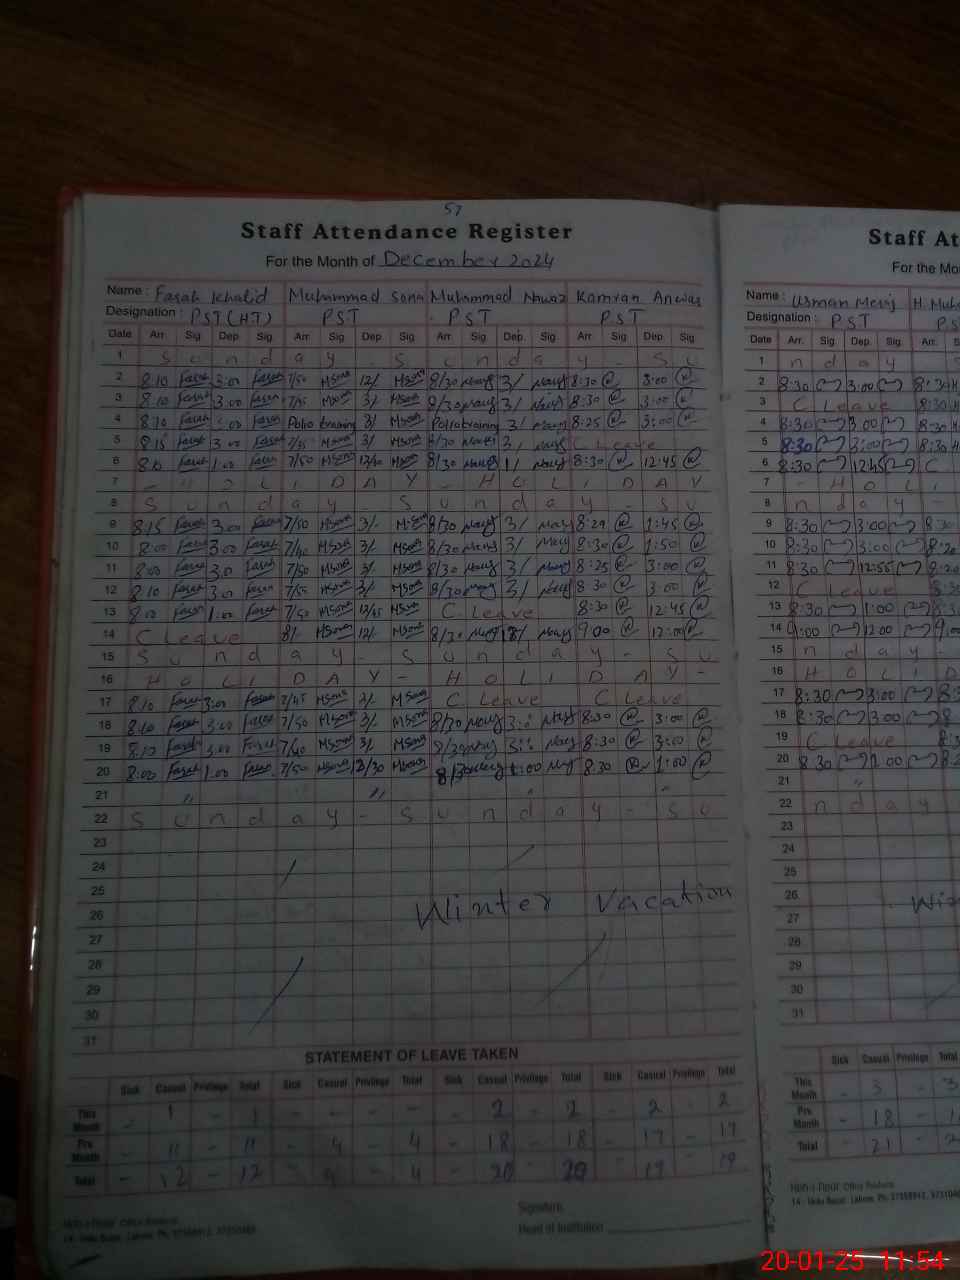 57
Staff Attendance Register
For the Month of December 2024
Name : Farah Khalid Muhammad Sona Muhammad Nawaz Kamran Anwar
Designation : PST (HT) PST PST PST
Date Arr. Sig. Dep. Sig. Arr. Sig. Dep. Sig. Arr. Sig. Dep. Sig. Arr. Sig. Dep. Sig.
1 S u n d a y - S u n d a y - S u
2 8:10 Farah 3:00 Farah 7/50 MSona 12/ MSona 8/30 Nawaz 3/ Nawaz 8:30 3:00
3 8:10 Farah 3:00 Farah 7/45 MSona 3/ MSona 8/30 Nawaz 3/ Nawaz 8:30 3:00
4 8:10 Farah 3:00 Farah Polio training 3/ MSona Polio training 3/ Nawaz 8:25 3:00
5 8:15 Farah 3:00 Farah MSona 3/ MSona 8/30 Nawaz 3/ Nawaz C Leave
6 Farah 1:00 Farah 7/50 MSona MSona 8/30 Nawaz 1/ Nawaz 8:30 12:45
7 - H O L I D A Y - H O L I D A Y
8 S u n d a y S u n d a y - S u
9 8:15 Farah 3:00 Farah 7/50 MSona 3/- MSona 8/30 Nawaz 3/ Nawaz 8:29 1:45
10 8:00 Farah 3:00 Farah 7/40 MSona 3/ MSona 8/30 Nawaz 3/ Nawaz 8:30 1:50
11 8:00 Farah 3:00 Farah 7/50 MSona 3/ MSona 8/30 Nawaz 3/ Nawaz 8:25 3:00
12 8:10 Farah 3:00 Farah 7/55 MSona 3/- MSona 8/30 Nawaz 3/ Nawaz 8:30 3:00
13 8:10 Farah 1:00 Farah 7/50 MSona 12/45 MSona C. Leave 8:30 12:45
14 C Leave 8/- MSona 12/- MSona 8/30 Nawaz Nawaz 9:00 12:00
15 S u n d a y - S u n d a y - S u
16 H O L I D A Y - H O L I D A Y -
17 8:10 Farah 3:00 Farah 7/45 MSona MSona C. Leave C Leave
18 8:10 Farah 3:00 Farah 7/50 MSona 3/- MSona 8/30 Nawaz Nawaz 8:30 3:00
19 8:10 Farah 3:00 Farah 7/40 MSona 3/ MSona 8/30 Nawaz Nawaz 8:30 3:00
20 8:00 Farah 1:00 Farah 7/50 MSona 12/30 MSona 8/30 Nawaz 1:00 Nawaz 8:30 1:00
21 " " " "
22 S u n d a y - S u n d a y - S u
23
24
25
26 Winter Vacation
27
28
29
30
31
STATEMENT OF LEAVE TAKEN
Sick Casual Privilege Total Sick Casual Privilege Total Sick Casual Privilege Total Sick Casual Privilege Total
This Month - 1 - 1 - - - - - 2 - 2 - 2 - 2
Pre Month - 11 - 11 - 4 - 4 - 18 - 18 - 17 - 17
Total - 12 - 12 - 4 - 4 - 20 - 20 - 19 - 19
Signature
Head of Institution
Staff At
For the Mo
Name : Usman Meraj H. Muha
Designation : PST PS
Date Arr. Sig. Dep. Sig. Arr. S
1 n d a y
2 8:30 3:00 8:30
3 C Leave 8:30
4 8:30 3:00 8:30
5 8:30 3:00 8:30
6 8:30 12:45 C
7 - H O L I
8 n d a y -
9 8:30 3:00 8:30
10 8:30 3:00 8:20
11 8:30 12:55 8:20
12 C Leave 8:30
13 8:30 1:00 8:30
14 9:00 12:00 9:00
15 n d a y -
16 H O L I D
17 8:30 3:00
18 8:30 3:00
19 C Leave
20 8:30 1:00
21 "
22 n d a y
23
24
25
26
27
28
29
30
31
Sick Casual Privilege Total
This Month - 3 - 3
Pre Month - 18 -
Total - 21 -
20-01-25 11:54